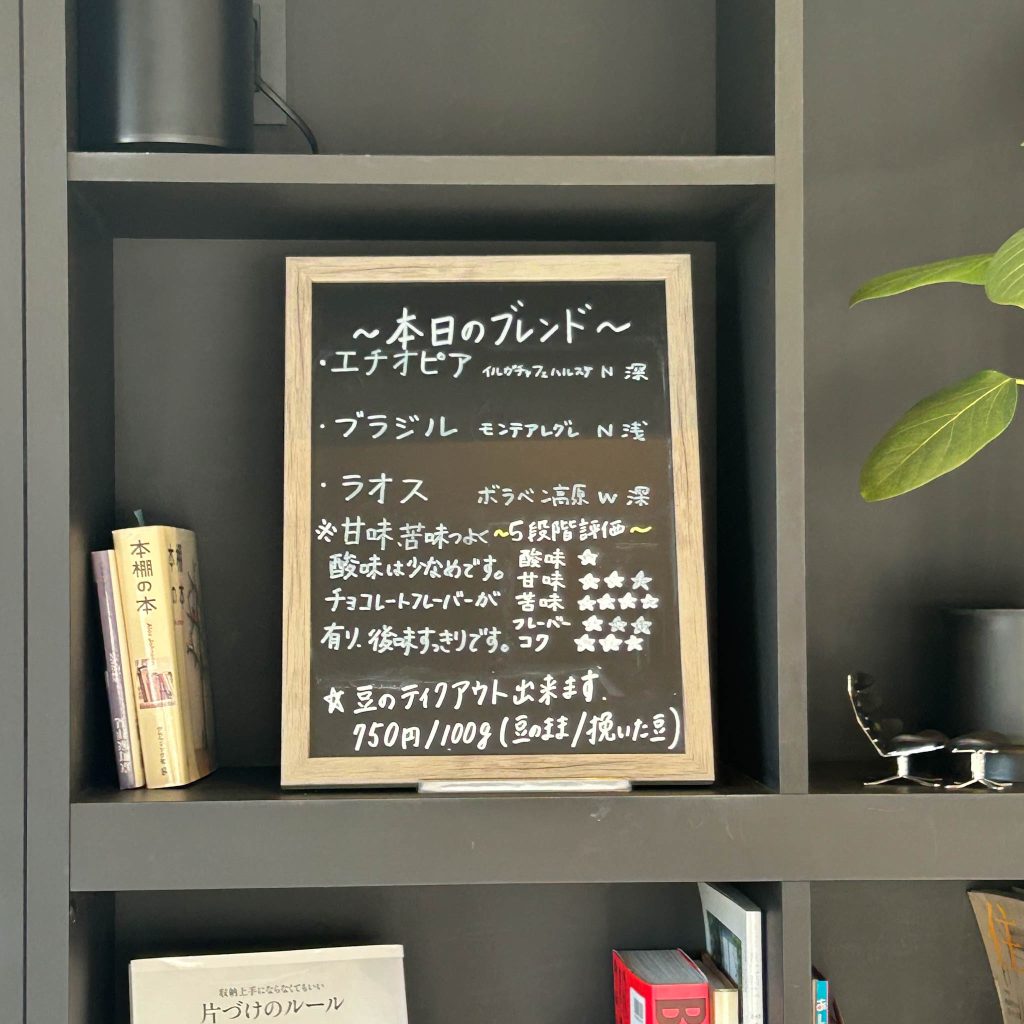 ～本日のブレンド～
・エチオピア イルガチャフェハルスケ N 深
・ブラジル モンテアレグレ N 浅
・ラオス ボラベン高原 W 深
※甘味、苦味つよく
酸味は少なめです。
チョコレートフレーバーが
有り、後味すっきりです。
～5段階評価～
酸味 ★
甘味 ★★★
苦味 ★★★★
フレーバー ★★★
コク ★★★
☆豆のテイクアウト出来ます.
750円/100g(豆のまま/挽いた豆)
本棚の本
収納上手にならなくてもいい
片づけのルール